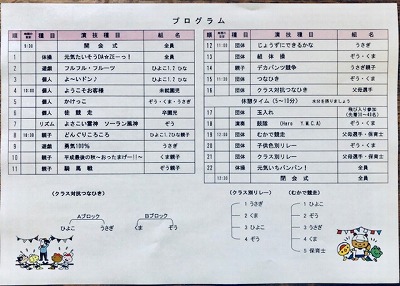 プログラム
順 時間 種目 演技種目 組名
9:30 開会式 全員
1 体操 元気たいそうDA☆ZEーっ! 全員
2 遊戯 フルフル・フルーツ ひよこ1.2 ひな
3 個人 よ～いドン♪ ひよこ1.2 ひな
4 10:00 個人 ようこそお客様 未就園児
5 個人 かけっこ ぞう・くま・うさぎ
6 個人 卒園児
7 リズム よさこい ソーラン風神 ぞう
8 10:30 親子 どんぐりころころ ひよこ1.2ひな親子
9 遊戯 勇気100% うさぎ
10 親子 平成最後の秋～おったまげー!!～ くま親子
11 親子 騎馬戦 ぞう親子
順 時間 種目 演技種目 組名
12 11:00 団体 じょうずにできるかな うさぎ
13 団体 組体操 ぞう・くま
14 親子 デカパンツ競争 うさぎ親子
15 11:30 団体 つなひき ぞう・くま
16 団体 クラス対抗つなひき 父母選手
休憩タイム(5～10分) 水分を摂りましょう
17 団体 玉入れ 飛び入り参加
18 演奏 鼓隊 (Hero Y.M.C.A) ぞう
19 12:00 団体 むかで競走 父母選手・保育士
20 団体 子供色別リレー ぞう・くま
21 団体 クラス別リレー 父母選手
22 体操 元気いちバンバン! 全員
閉会式 全員
(クラス対抗つなひき)
Aブロック Bブロック
ひよこ うさぎ くま ぞう
(クラス別リレー) (むかで競走)
1 うさぎ 1 ひよこ
2 くま 2 うさぎ
3 ひよこ 3 ぞう
4 ぞう 4 くま
5 保育士